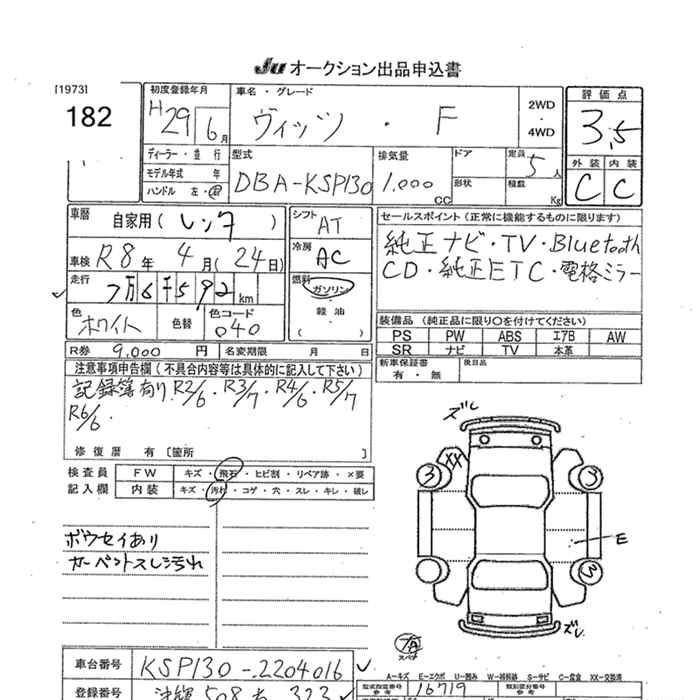 JU オークション出品申込書
[1973]
182
初度登録年月
H29 6月
車名・グレード
ヴィッツ ・ F
2WD
・
4WD
評価点
3.5
ディーラー・並行
モデル年式 年
ハンドル 左・右
型式
DBA-KSP130
排気量
1,000 CC
ドア
形状
定員 5人
積載 Kg
外装 内装
C C
車歴
自家用( レンタ )
車検 R8年 4月(24日)
走行
7万6千592km
シフト AT
冷房 AC
燃料
ガソリン
軽油
( )
色
ホワイト
色替
色コード
040
セールスポイント(正常に機能するものに限ります)
純正ナビ・TV・Bluetooth
CD・純正ETC・電格ミラー
装備品 (純正品に限り○を付けてください)
PS PW ABS エアB AW
SR ナビ TV 本革
R券 9,000円
名変期限 月 日
新車保証書
有・無
後日品
注意事項申告欄(不具合内容等は具体的に記入して下さい)
記録簿有り. R2/6. R3/7. R4/6. R5/7
R6/6.
修復歴 有〔箇所 〕
検査員
記入欄
FW キズ・飛石・ヒビ割・リペア跡・×要
内装 キズ・汚れ・コゲ・穴・スレ・キレ・破レ
ボウセイあり
カーペットスレ汚れ
ズレ
XX
3
3
E
3
ズレ
スペナ
A=キズ E=エクボ U=凹み W=補修跡 S=サビ C=腐食 XX=交換済
車台番号 KSP130-2204016
型式指定番号
参考
16719
類別区分番号
参考
登録番号
508
323